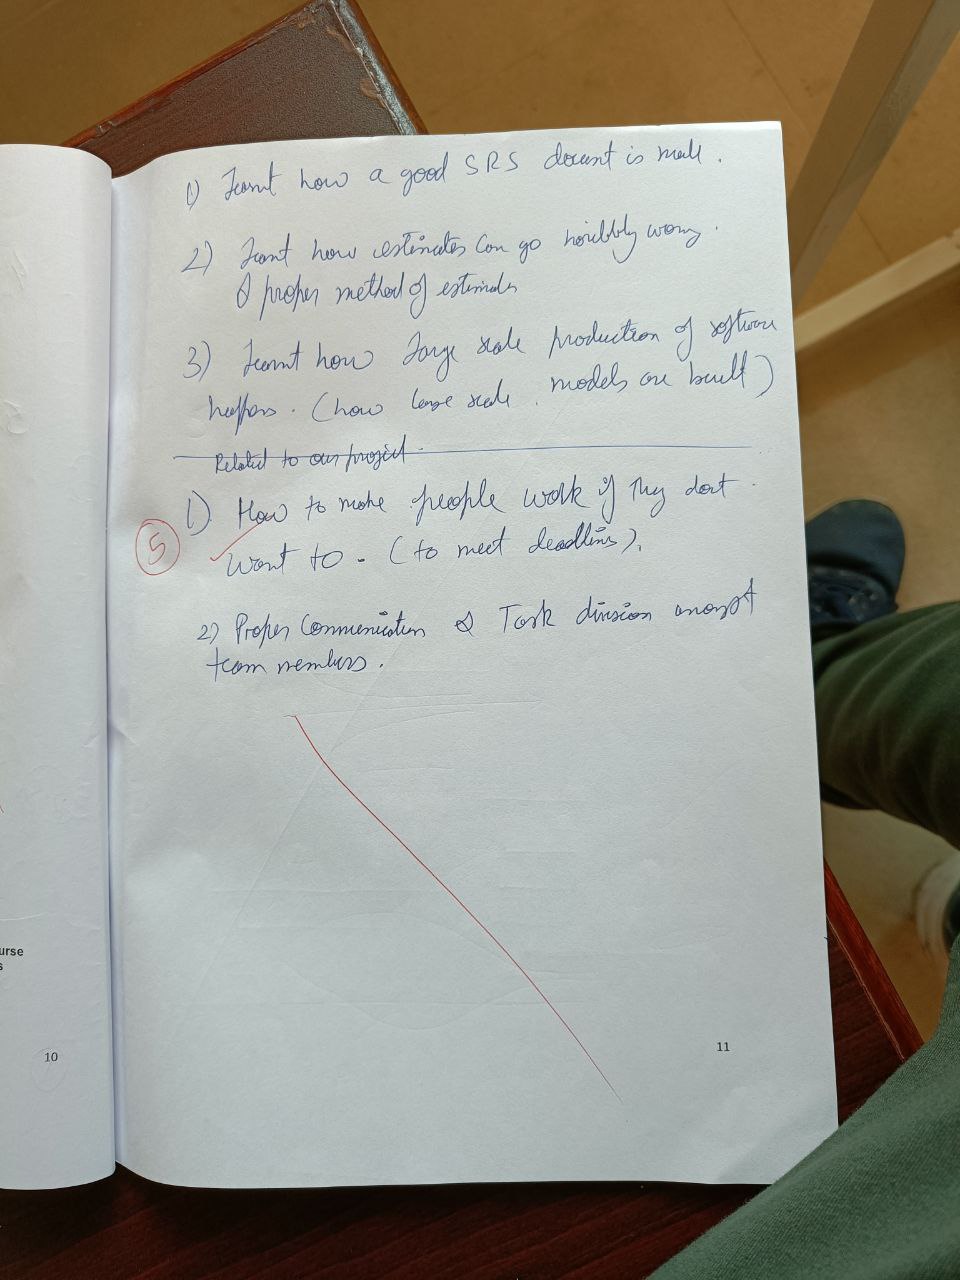 1) Learnt how a good SRS docment is made.
2) Learnt how estimates can go horribly wrong.
& proper method of estimates
3) Learnt how large scale production of software
happens. (how large scale models are built)
Related to our project.
1) How to make people work if they dont
want to. (to meet deadlines).
5
2) Proper Communication & Task division amongst
team members.
urse
s
10
11